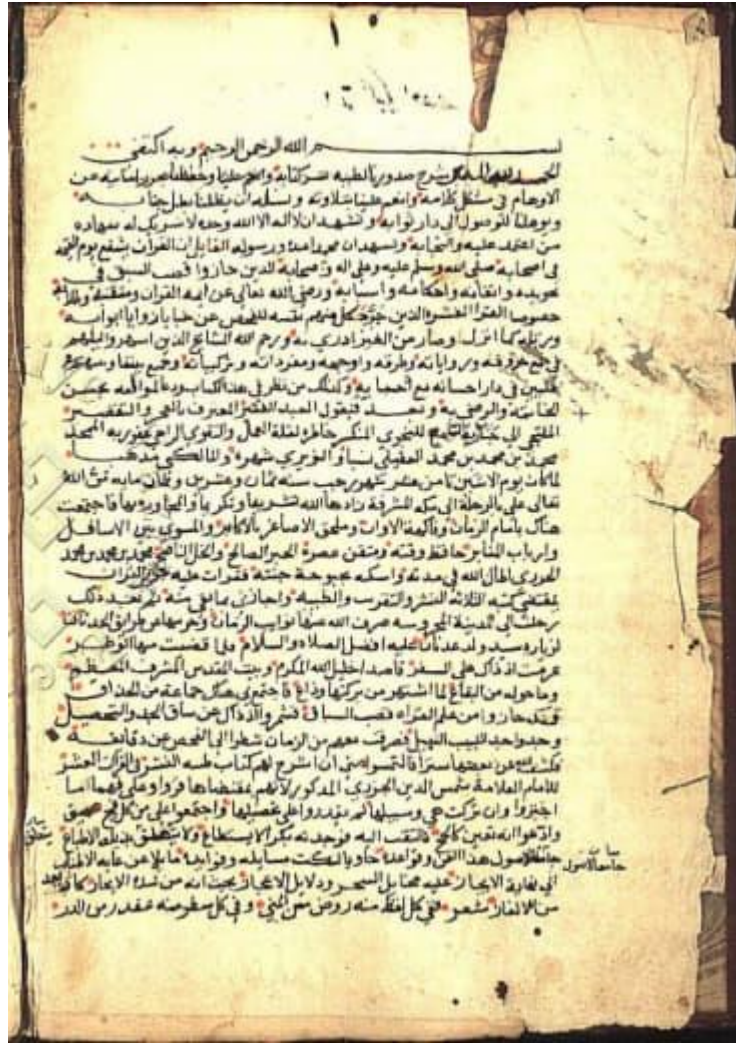 ١
بسم الله الرحمن الرحيم وبه اكتفي
الحمد لله الذي شرح صدورنا لطيبه نشر كتابه وانعم علينا وحفظنا
الاوهام في مشكل كلامه وانعم علينا بتلاوته ونسله ان يظلنا بظل جنابه
ويوهلنا للوصول الى دار ثوابه ونشهد ان لا اله الا الله وحده لا شريك له شهاده
من اعتمد عليه واكتفى به ونشهد ان محمدا عبده ورسوله القايل ان القران يشفع يوم القيمة
في اصحابه صلى الله وسلم عليه وعلى اله وصحابه الذين حازوا قصب السبق في
تجويده واتقانه واحكامه واسبابه ورضي الله تعالى عن ايمه القران
خصوصا القرا العشره الذين جرد كل منهم نفسه للفحص عن خبايا زوايا ابوابه
ورتله كما انزل وصار من الغير ادرى به ورحم الله المشايخ الذين
في جمع حروفه ورواياته وطرقه واوجهه ومفرداته وتركيباته
في دار احسانه مع احبابه وكذلك من نظر في هذا الكتاب ودعا لمولفه بحسن
الخاتمة والرضى به وبعد فيقول العبد الفقير المعترف بالعجز والتقصير
الملتجي الى المنكسر خاطره لقلة العمل والتقوى الراجي عفو ربه المجيد
محمد بن محمد بن محمد العقيلي نسبا والنويري شهرة والمالكي مذهبا
لما كان يوم الاثنين ثامن عشر شهر رجب سنه ثمان وعشرين وثمان مايه من الله
تعالى علي بالرحلة الى مكه المشرفة زادها الله تشريفا وتكريما والمجاوره بها فاجتمعت
هناك بامام الزمان وفاكهة الاوان وملحق الاصاغر بالاكابر والمسوي بين الاسافل
وارباب المنابر حافظ وقته ومتقن عصرة الحبر الصالح والخل الناصح محمد بن محمد بن محمد
الجزري اطال الله في مدته واسكنه بحبوحة جنته فقرات عليه جزءا من القران
بمقتضى كتبه الثلاثه النشر والتقريب والطيبه واجازني بما بقي منه ثم بعد ذلك
رحلت الى المدينة المحروسه صرف الله عنها نوايب الزمان وحرسها من طوارق الحدثان
لزياره سيد ولد عدنان عليه افضل الصلاه والسلام ولما قضيت منها الوطر
عزمت اذ ذاك على السفر قاصدا خليل الله المكرم وبيت المقدس الشريف المعظم
وما حوله من البقاع لما اشتهر من بركتها وذاع فاجتمع بي هنالك جماعة من الحذاق
قد حازوا من علم القراه قصب السباق فشمر اذ ذاك عن ساق الجد والتحصيل
وجد واجتهد اللبيب النبيل فصرفت معهم من الزمان شطرا الى الفحص عن دقايقه
عن بعضها سترا فالتمسوا مني ان اشرح لهم كتاب طيبه النشر في القرات العشر
للامام العلامة شمس الدين الجزري المذكور لانهم بمقتضاها قروا وعلى فهمها ما
اجتروا وان تركت هي وسبيلها لم يقدروا على تحصيلها واجتمعوا علي من كل فج عميق
وادعوا انه تعين فالتفت اليه فوجدته بكرا لا يستطاع ولا يتعلق بذيله الاطماع
جامعا لاصول هذا الفن وقواعده حاويا لنكت مسايله وفوايده مايلا عن غايه الاطناب
الى نهاية الايجاز عليه مخايل السحر ودلايل الاعجاز بحيث انه من شده الايجاز كاد يعد
من الالغاز ففي كل لفظ منه روض من المنى وفي كل سطر منه عقد من الدر
بيان
جامعا لاصول
بيان
يتعلق